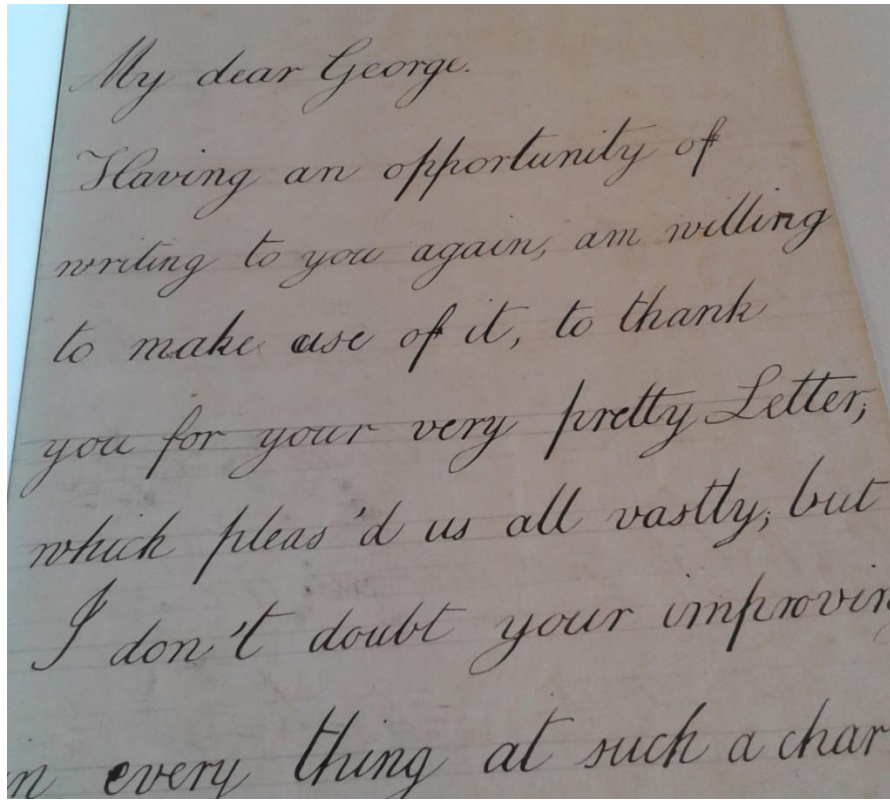 My dear George.
Having an opportunity of
writing to you again, am willing
to make use of it, to thank
you for your very pretty Letter;
which pleas'd us all vastly; but
I don't doubt your
every thing at such a